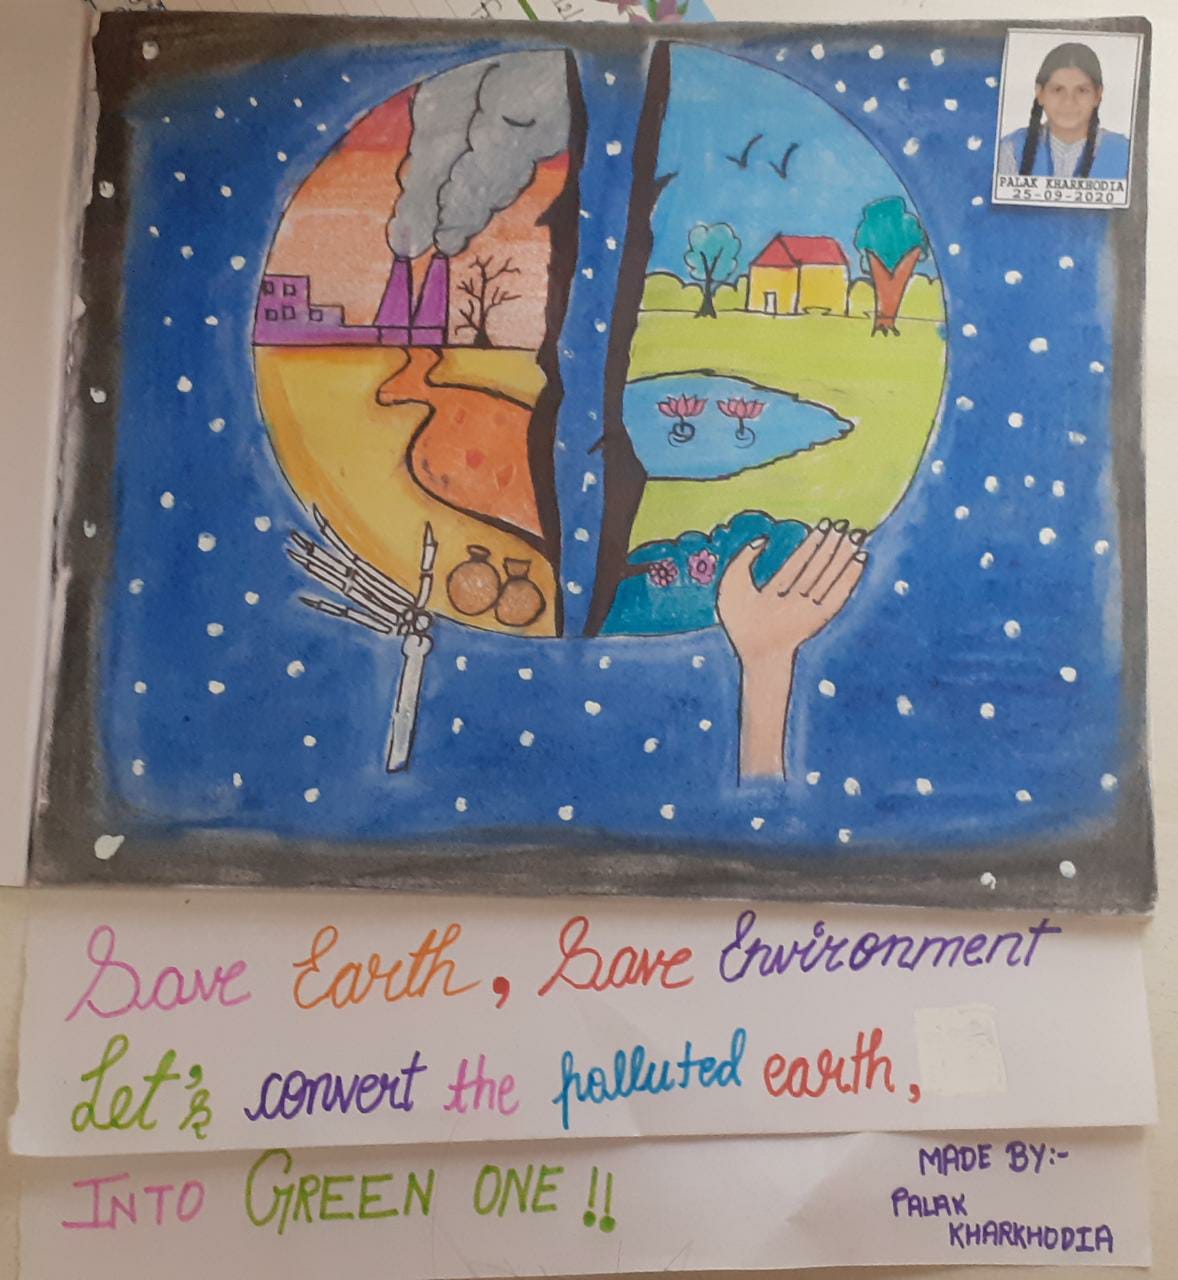 PALAK KHARKHODIA
25-09-2020
Save Earth, Save Environment
Let's convert the polluted earth,
INTO GREEN ONE!!
MADE BY:-
PALAK
KHARKHODIA